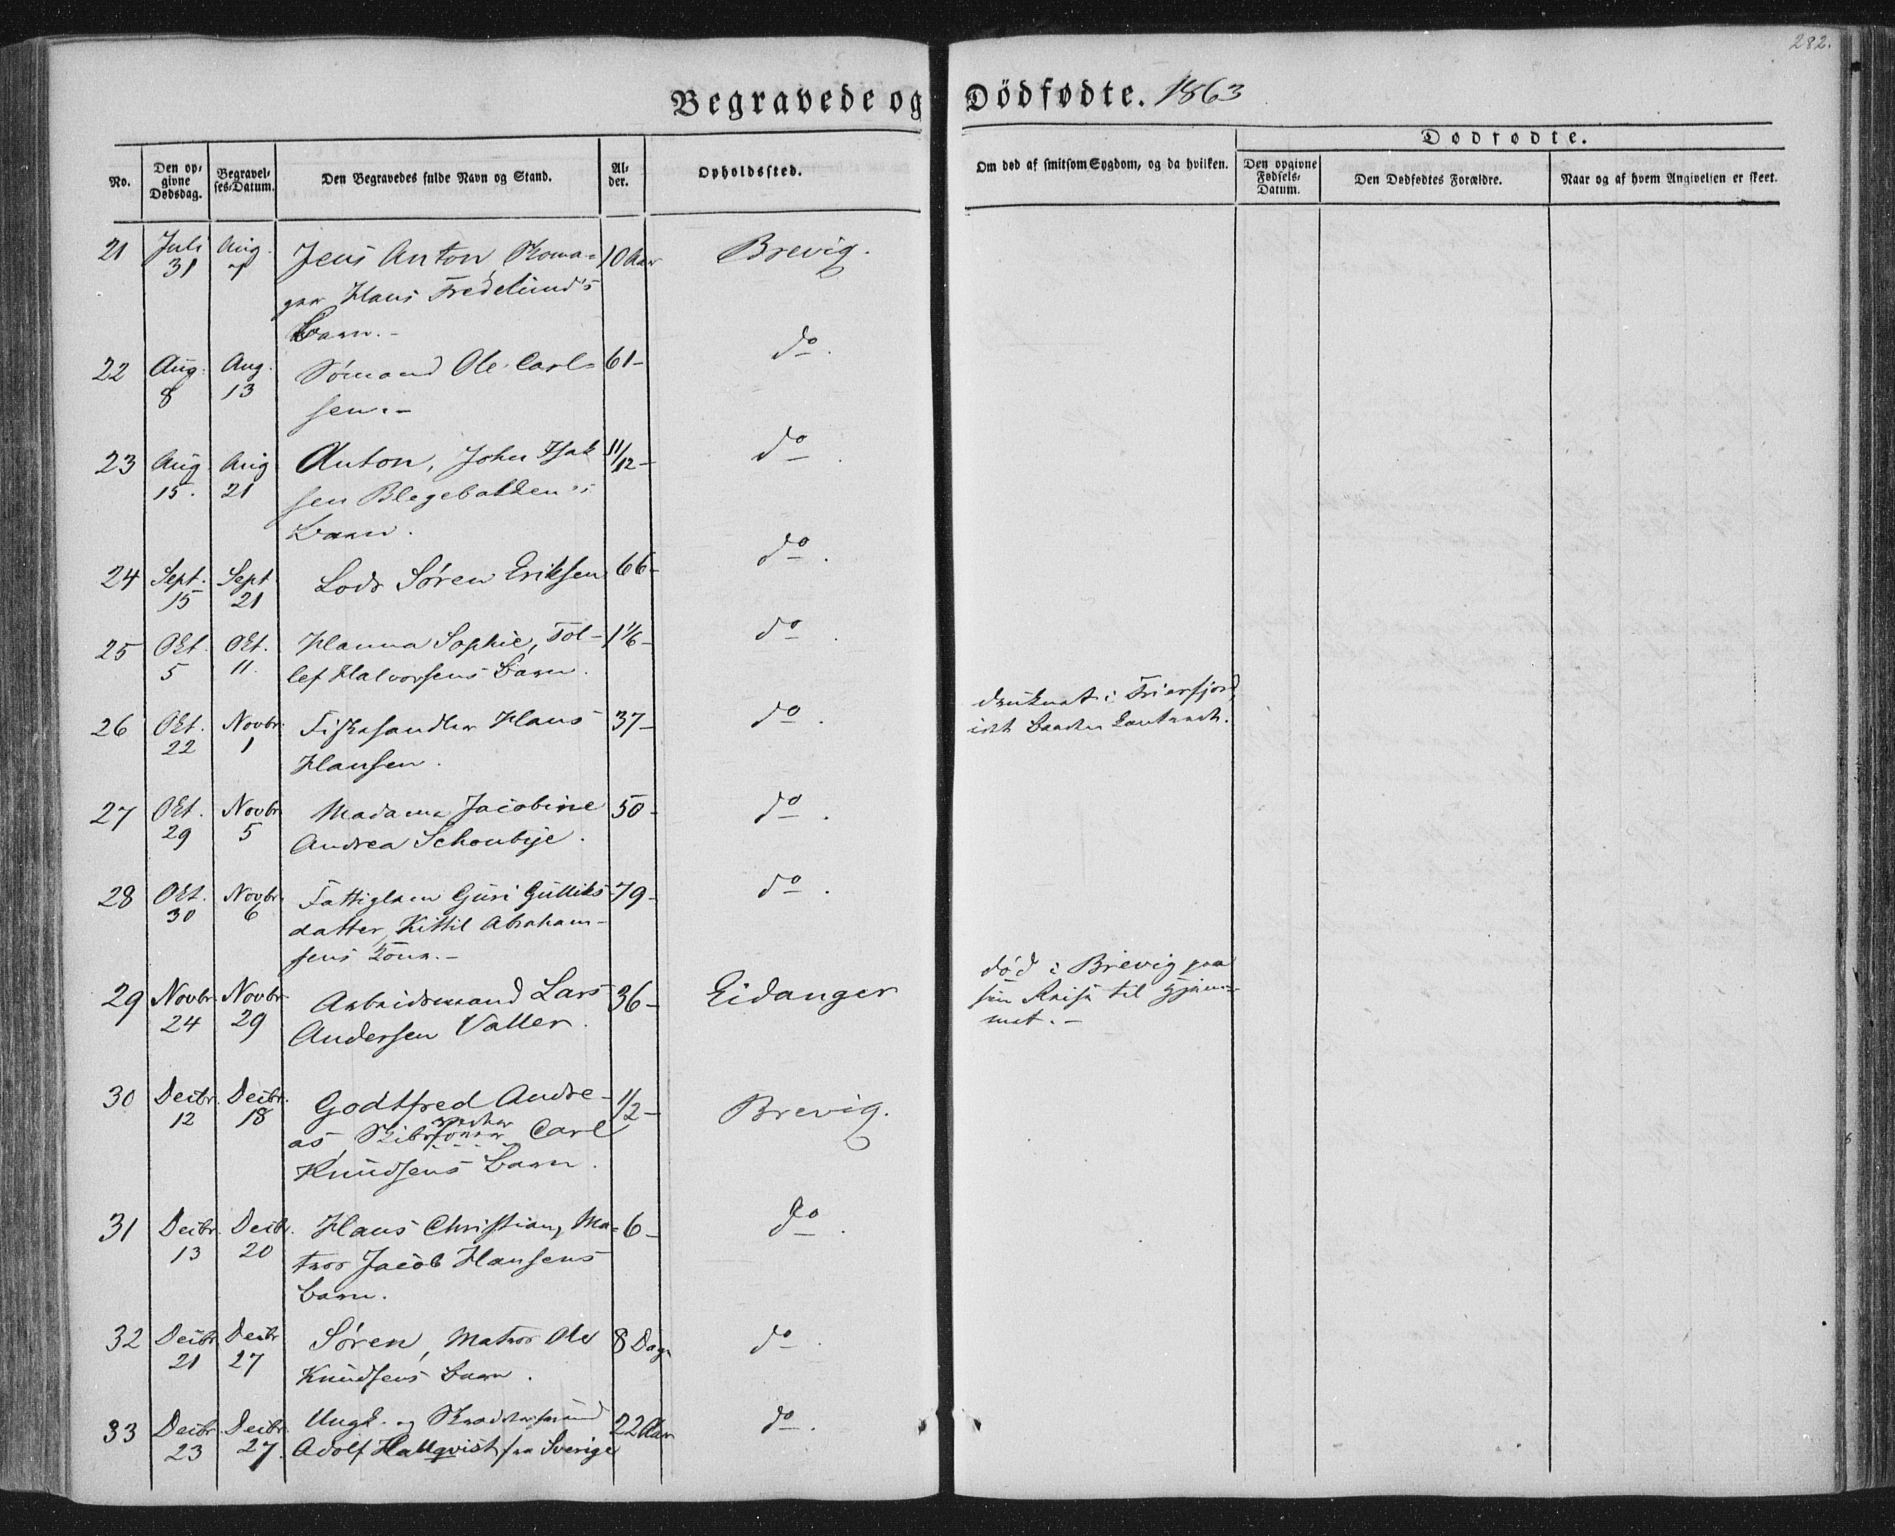 282.
Begravede og Dödfødte. 1863
Dødfødte.
No.
Den op-
givne
Dødsdag.
Begravel-
ses-Datum.
Den Begravedes fulde Navn og Stand.
Al-
der.
Opholdssted.
Om død af smitsom Sygdom, og da hvilken.
Den opgivne
Fødsels-
Datum.
Den Dødfødtes Forældre.
Naar og af hvem Angivelsen er skeet.
21 Juli Aug. Jens Anton, Skoma- 10 Aar Brevig.
31 7 ger Hans Fredelund's
Barn.-
22 Aug. Aug. Sømand Ole Carl- 61- do.
8 13 sen.-
23 Aug. Aug Anton, John Isak 11/12- do.
15. 21 sen Blegebakken's
Barn.
24 Sept. Sept Lods Søren Eriksen 66- do.
15 21
25 Okt. Okt. Hanna Sophie, Tol- 1 1/6- do.
5 11. lef Halvorsens Barn.
26 Okt. Novbr. Fiskehandler Hans 37- do. druknet i Frierfjord,
22 1 Hansen. idet Baaden kantrede.
27 Okt. Novbr Madame Jacobine 50- do.
29 5 Andrea Schoubye.
28 Okt. Novbr. Fattiglem Guri Gulliks- 79- do.
30 6 datter, Kittil Abraham-
sens Kone.-
29 Novbr. Novbr. Arbeidsmand Lars 36- Eidanger død i Brevig paa
24 29 Andersen Valler. sin Reise til Hjem-
met.-
30 Decbr. Decbr. Godtfred Andre- 1/2- Brevig.
12 18 as, Skibs Carl
Knudsens Barn.
31 Decbr. Decbr. Hans Christian, Ma- 6- do.
13 20 tros Jacob Hansens
Barn.
32 Decbr. Decbr Søren, Matros Ole 8 Dage do.
21 27 Knudsens Barn.
33 Decbr. Decbr. Ungk. og Skræddersvend 22 Aar do.
23 27. Adolf Hallqvist fra Sverige